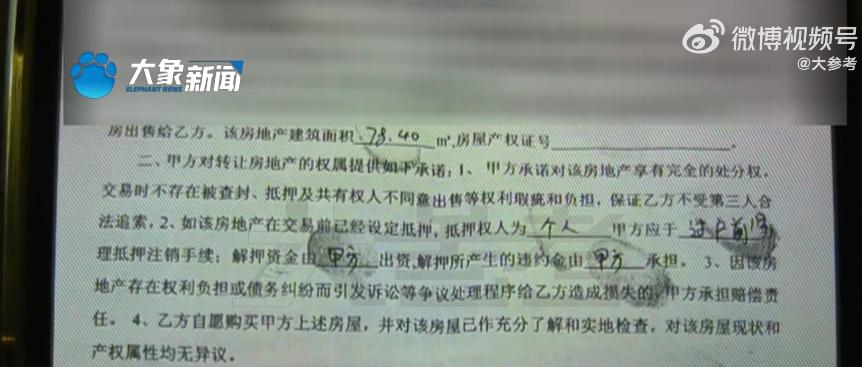 微博视频号
@大参考
大象新闻
ELEPHANT NEWS
房出售给乙方。该房地产建筑面积 78.40 m²,房屋产权证号
二、甲方对转让房地产的权属提供如下承诺:1、甲方承诺对该房地产享有完全的处分权,
交易时不存在被查封、抵押及共有权人不同意出售等权利瑕疵和负担,保证乙方不受第三人合
法追索,2、如该房地产在交易前已经设定抵押,抵押权人为 个人 甲方应于 过户前
理抵押注销手续;解押资金由 甲方 出资,解押所产生的违约金由 甲方 承担。 3、因该房
地产存在权利负担或债务纠纷而引发诉讼等争议处理程序给乙方造成损失的,甲方承担赔偿责
任。 4、乙方自愿购买甲方上述房屋,并对该房屋己作充分了解和实地检查,对该房屋现状和
产权属性均无异议。